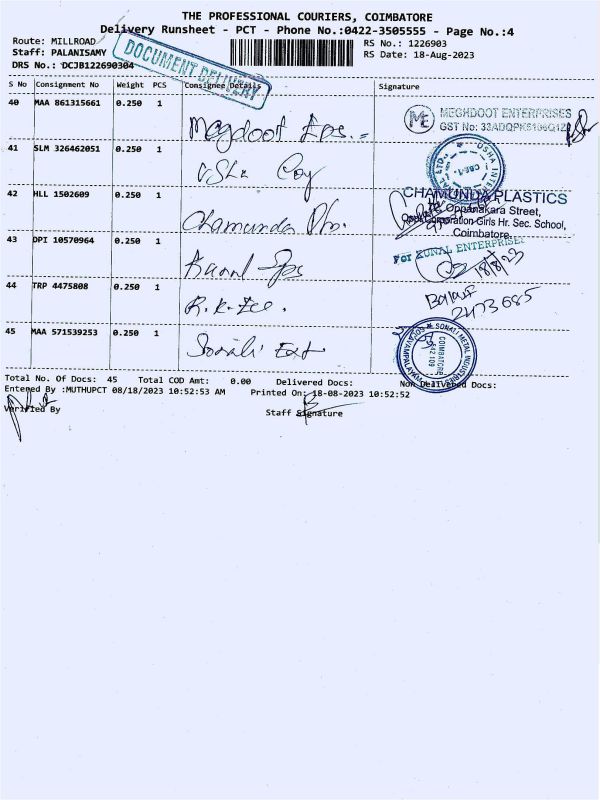 THE PROFESSIONAL COURIERS, COIMBATORE
Delivery Runsheet - PCT - Phone No.:0422-3505555 - Page No.:4
Route: MILLROAD
Staff: PALANISAMY
DRS No.: DCJB122690304
DOCUMENT DELIVERY
RS No.: 1226903
RS Date: 18-Aug-2023
S No Consignment No Weight PCS Consignee Details Signature
40 MAA 861315661 0.250 1 Magdoot Eps.
MEGHDOOT ENTERPRISES
41 SLM 326462051 0.250 1
42 HLL 1502609 0.250 1 Chamunda
CHAMUNDA PLASTICS
Oppanakara Street,
Corporation Girls Hr. Sec. School,
Coimbatore.
43 DPI 10570964 0.250 1
For KUNAL ENTERPRISES
18/8/23
44 TRP 4475808 0.250 1 R.K.
2473685
45 MAA 571539253 0.250 1 Sonali
SONALI METAL INDUSTRIES
COIMBATORE
641 109
Total No. Of Docs: 45 Total COD Amt: 0.00 Delivered Docs: Non Delivered Docs:
Entered By :MUTHUPCT 08/18/2023 10:52:53 AM Printed On: 18-08-2023 10:52:52
Verified By
Staff Signature